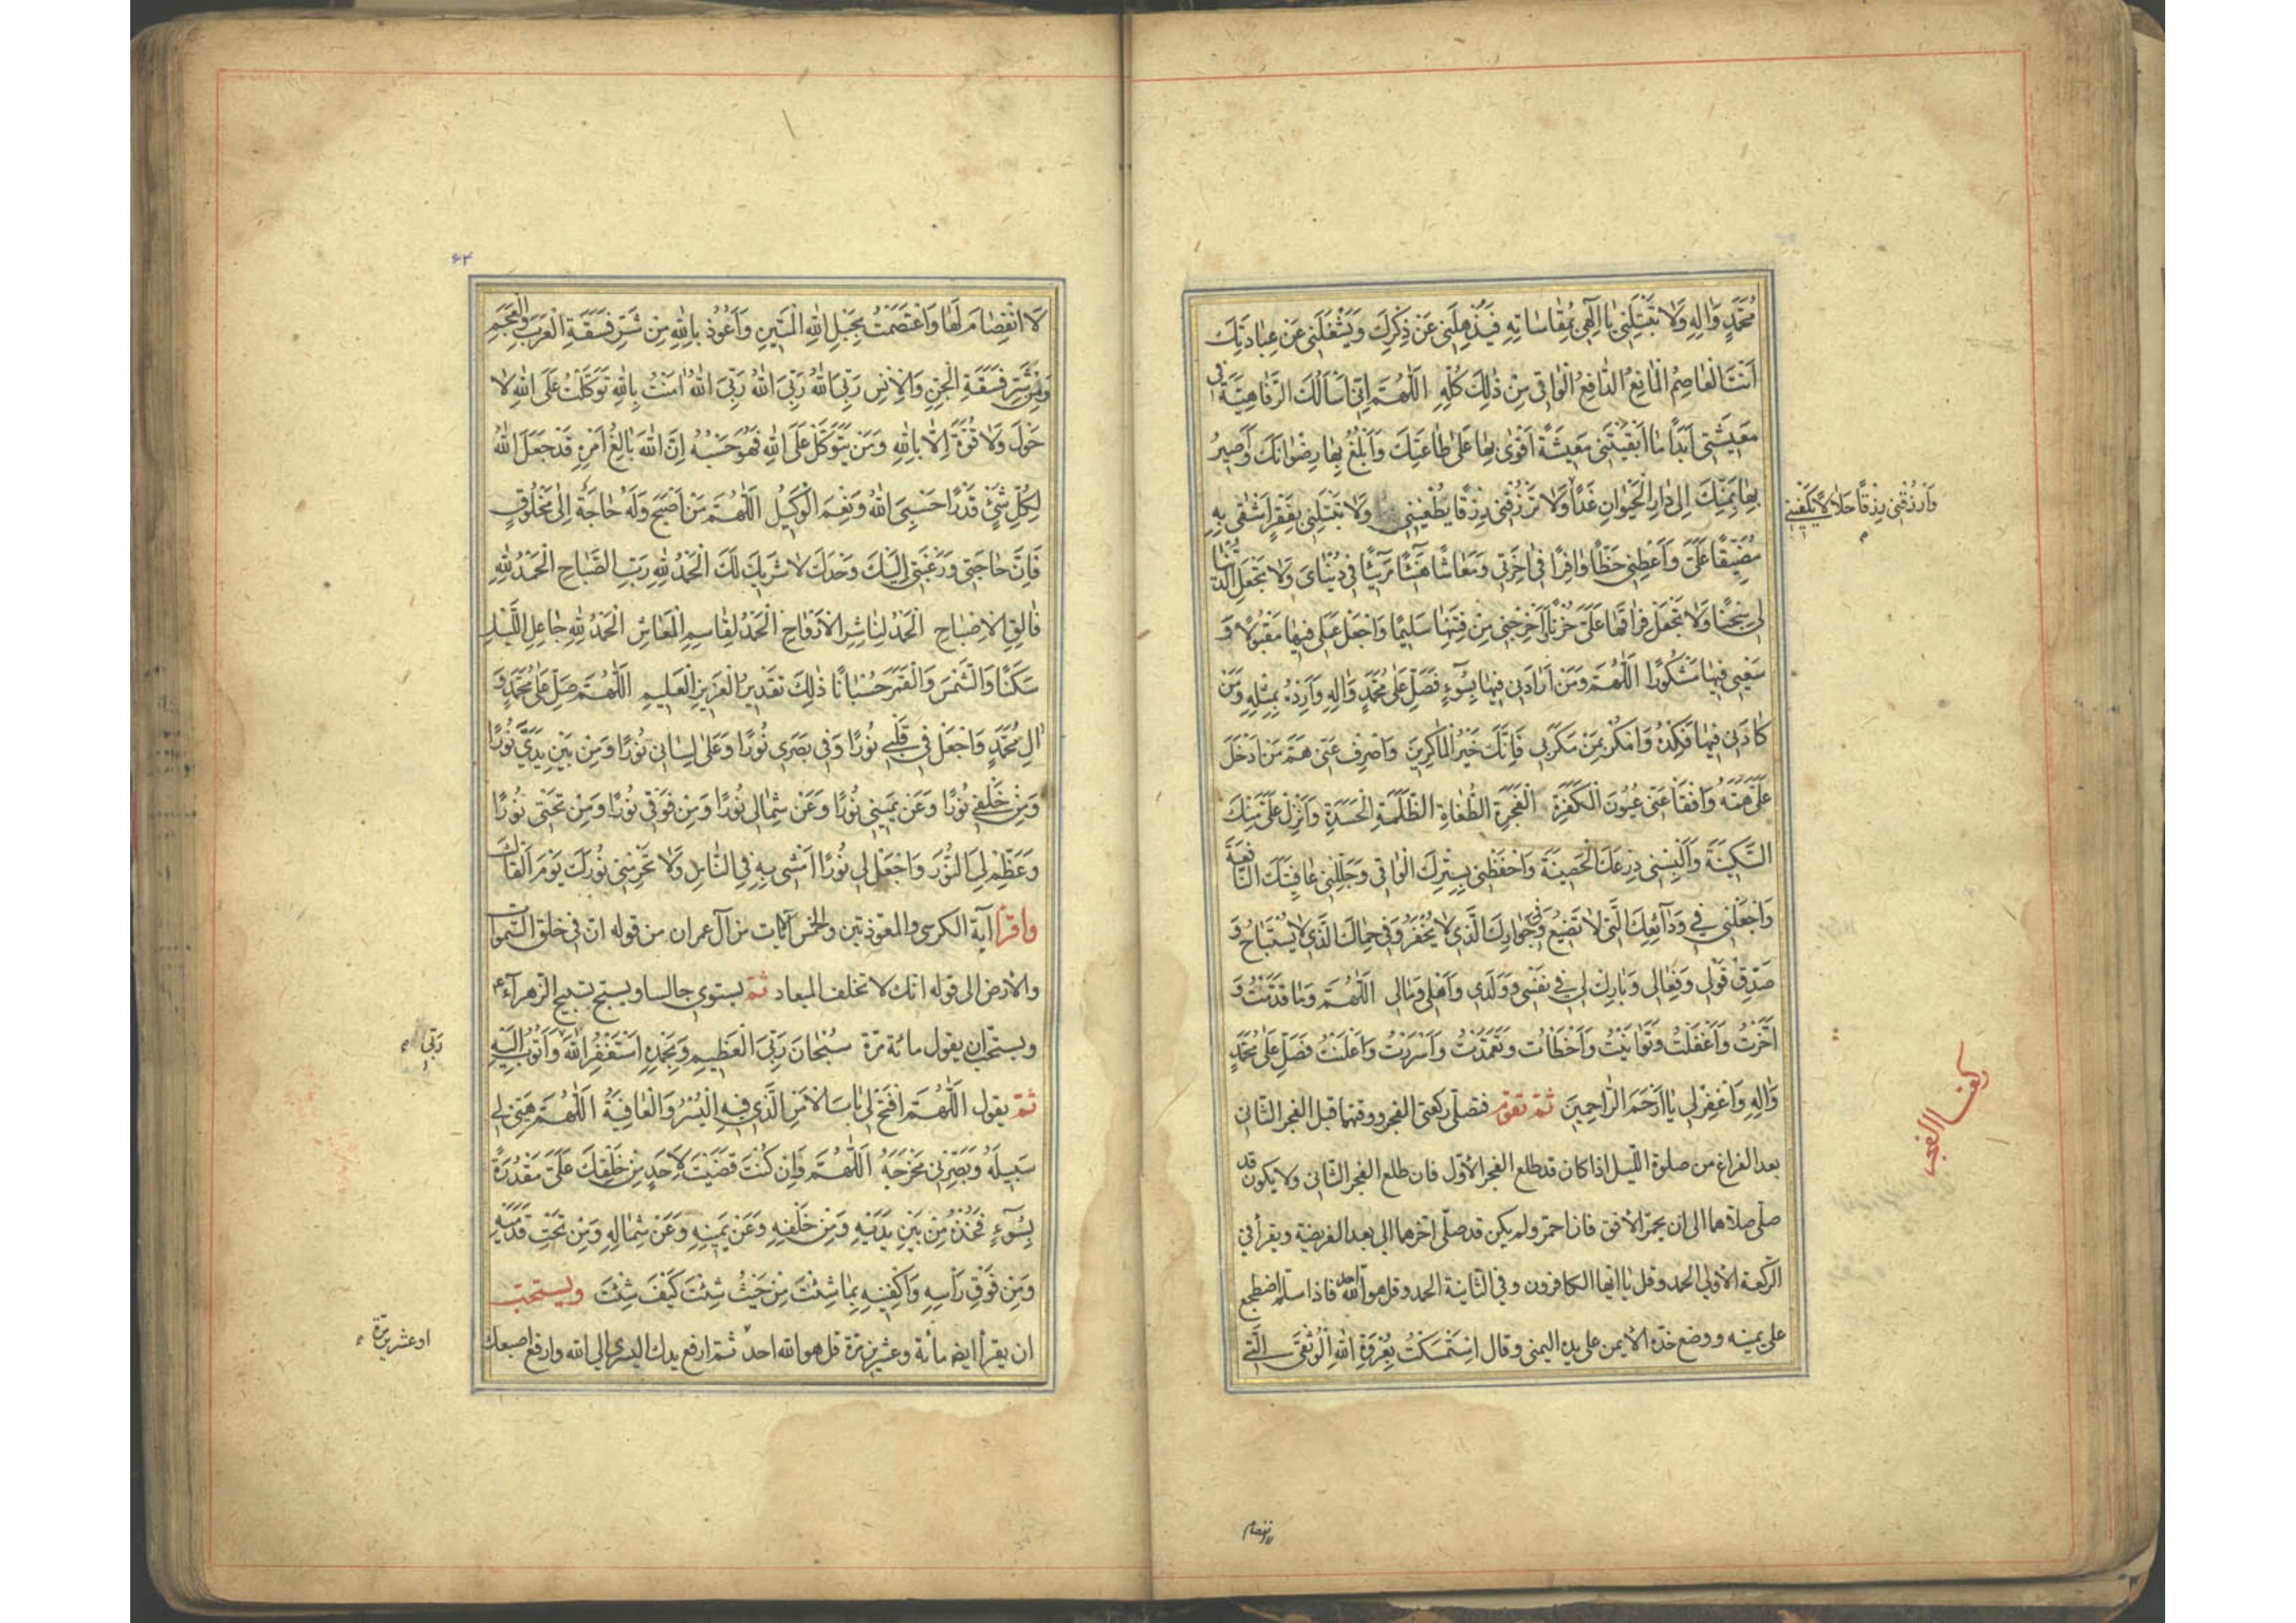 مُحَمَّدٍ وَاٰلِهِ وَلَا تَبْتَلِنِى يَا اِلٰهِى بِمُقَاسَاتِهِ فَيُذْهِلَنِى عَنْ ذِكْرِكَ وَيَشْغَلَنِى عَنْ عِبَادَتِكَ
اَنْتَ الْعَاصِمُ الْمَانِعُ الدَّافِعُ الْوَاقِى مِنْ ذٰلِكَ كُلِّهِ اَللّٰهُمَّ اِنِّى اَسْاَلُكَ الرَّفَاهِيَّةَ فِى
مَعِيشَتِى اَبَدًا مَا اَبْقَيْتَنِى مَعِيشَةً اَقْوٰى بِهَا عَلٰى طَاعَتِكَ وَاَبْلُغُ بِهَا رِضْوَانَكَ وَاَصِيرُ
بِهَا بِمَنِّكَ اِلٰى دَارِ الْحَيَوانِ غَدًا وَلَا تَرْزُقْنِى رِزْقًا يُطْغِينِى وَلَا تَبْتَلِنِى بِفَقْرٍ اَشْقٰى بِهِ
وَارْزُقْنِى رِزْقًا حَلَالًا يَكْفِينِى
مُضَيَّقًا عَلَىَّ وَاَعْطِنِى حَظًّا وَافِرًا فِى اٰخِرَتِى وَمَعَاشًا هَنِيئًا مَرِيئًا فِى دُنْيَاىَ وَلَا تَجْعَلِ الدُّنْيَا
لِى سِجْنًا وَلَا تَجْعَلْ فِرَاقَهَا عَلَىَّ حُزْنًا اَخْرِجْنِى مِنْ فِتْنَتِهَا سَلِيمًا وَاجْعَلْ عَمَلِى فِيهَا مَقْبُولًا وَ
سَعْيِى فِيهَا مَشْكُورًا اَللّٰهُمَّ وَمَنْ اَرَادَنِى فِيهَا بِسُوءٍ فَصَلِّ عَلٰى مُحَمَّدٍ وَاٰلِهِ وَاَرِدْهُ بِمِثْلِهِ وَمَنْ
كَادَنِى فِيهَا فَكِدْهُ وَامْكُرْ بِمَنْ مَكَرَ بِى فَاِنَّكَ خَيْرُ الْمَاكِرِينَ وَاصْرِفْ عَنِّى هَمَّ مَنْ اَدْخَلَ
عَلَىَّ هَمَّهُ وَافْقَأْ عَنِّى عُيُونَ الْكَفَرَةِ الْفَجَرَةِ الطُّغَاةِ الظَّلَمَةِ الْحَسَدَةِ وَاَنْزِلْ عَلَىَّ مِنْكَ
السَّكِينَةَ وَاَلْبِسْنِى دِرْعَكَ الْحَصِينَةَ وَاحْفَظْنِى بِسِتْرِكَ الْوَاقِى وَجَلِّلْنِى عَافِيَتَكَ النَّافِعَةَ
وَاجْعَلْنِى فِى وَدَائِعِكَ الَّتِى لَا تَضِيعُ وَفِى جِوَارِكَ الَّذِى لَا يُخْفَرُ وَفِى حِمَاكَ الَّذِى لَا يُسْتَبَاحُ وَ
صَدِّقْ قَوْلِى وَفِعَالِى وَبَارِكْ لِى فِى نَفْسِى وَوَلَدِى وَاَهْلِى وَمَالِى اَللّٰهُمَّ وَمَا قَدَّمْتُ وَ
اَخَّرْتُ وَاَغْفَلْتُ وَتَوَانَيْتُ وَاَخْطَأْتُ وَتَعَمَّدْتُ وَاَسْرَرْتُ وَاَعْلَنْتُ فَصَلِّ عَلٰى مُحَمَّدٍ
وَاٰلِهِ وَاغْفِرْ لِى يَا اَرْحَمَ الرَّاحِمِينَ ثمّ تقوم فتصلّى ركعتى الفجر ووقتهما قبل الفجر الثّانى
بعد الفراغ من صلوة اللّيل اذا كان قد طلع الفجر الأوّل فان طلع الفجر الثّانى ولا يكون قد
صلّى صلاهما الى ان يحمرّ الأفق فان احمرّ ولم يكن قد صلّى اخرهما الى بعد الفريضة ويقرأ فى
الرّكعة الاولى الحمد وقل يا ايّها الكافرون وفى الثّانية الحمد وقل هو الله احد فاذا سلّم اضطجع
على يمينه ووضع خدّه الأيمن على يده اليمنى وقال اسْتَمْسَكْتُ بِعُرْوَةِ اللّٰهِ الْوُثْقٰى الَّتِى
لا انفصام
۶۴
لَا انْفِصَامَ لَهَا وَاعْتَصَمْتُ بِحَبْلِ اللّٰهِ الْمَتِينِ وَاَعُوذُ بِاللّٰهِ مِنْ شَرِّ فَسَقَةِ الْعَرَبِ وَالْعَجَمِ
وَمِنْ شَرِّ فَسَقَةِ الْجِنِّ وَالْاِنْسِ رَبِّىَ اللّٰهُ رَبِّىَ اللّٰهُ رَبِّىَ اللّٰهُ اٰمَنْتُ بِاللّٰهِ تَوَكَّلْتُ عَلَى اللّٰهِ لَا
حَوْلَ وَلَا قُوَّةَ اِلَّا بِاللّٰهِ وَمَنْ يَتَوَكَّلْ عَلَى اللّٰهِ فَهُوَ حَسْبُهُ اِنَّ اللّٰهَ بَالِغُ اَمْرِهِ قَدْ جَعَلَ اللّٰهُ
لِكُلِّ شَىْءٍ قَدْرًا حَسْبِىَ اللّٰهُ وَنِعْمَ الْوَكِيلُ اَللّٰهُمَّ مَنْ اَصْبَحَ وَلَهُ حَاجَةٌ اِلٰى مَخْلُوقٍ
فَاِنَّ حَاجَتِى وَرَغْبَتِى اِلَيْكَ وَحْدَكَ لَا شَرِيكَ لَكَ الْحَمْدُ لِلّٰهِ رَبِّ الصَّبَاحِ الْحَمْدُ لِلّٰهِ
فَالِقِ الْاِصْبَاحِ الْحَمْدُ لِنَاشِرِ الْاَرْوَاحِ الْحَمْدُ لِقَاسِمِ الْمَعَاشِ الْحَمْدُ لِلّٰهِ جَاعِلِ اللَّيْلِ
سَكَنًا وَالشَّمْسَ وَالْقَمَرَ حُسْبَانًا ذٰلِكَ تَقْدِيرُ الْعَزِيزِ الْعَلِيمِ اَللّٰهُمَّ صَلِّ عَلٰى مُحَمَّدٍ وَ
اٰلِ مُحَمَّدٍ وَاجْعَلْ فِى قَلْبِى نُورًا وَفِى بَصَرِى نُورًا وَعَلٰى لِسَانِى نُورًا وَمِنْ بَيْنِ يَدَىَّ نُورًا
وَمِنْ خَلْفِى نُورًا وَعَنْ يَمِينِى نُورًا وَعَنْ شِمَالِى نُورًا وَمِنْ فَوْقِى نُورًا وَمِنْ تَحْتِى نُورًا
وَعَظِّمْ لِىَ النُّورَ وَاجْعَلْ لِى نُورًا اَمْشِى بِهِ فِى النَّاسِ وَلَا تَحْرِمْنِى نُورَكَ يَوْمَ اَلْقَاكَ
واقرأ آية الكرسى والمعوّذتين والخمس آيات من آل عمران من قوله انّ فى خلق السّموات
والأرض الى قوله انّك لا تخلف الميعاد ثمّ يستوى جالسا ويسبّح تسبيح الزهرآء ع
ويستحبّ ان يقول مائة مرّة سُبْحَانَ رَبِّىَ الْعَظِيمِ وَبِحَمْدِهِ اَسْتَغْفِرُ اللّٰهَ وَاَتُوبُ اِلَيْهِ
رَبِّى
ثمّ يقول اَللّٰهُمَّ افْتَحْ لِى بَابَ الْاَمْرِ الَّذِى فِيهِ الْيُسْرُ وَالْعَافِيَةُ اَللّٰهُمَّ هَيِّئْ لِى
سَبِيلَهُ وَبَصِّرْنِى مَخْرَجَهُ اَللّٰهُمَّ وَاِنْ كُنْتَ قَضَيْتَ لِاَحَدٍ مِنْ خَلْقِكَ عَلَىَّ مَقْدُرَةً
بِسُوءٍ فَخُذْهُ مِنْ بَيْنِ يَدَيْهِ وَمِنْ خَلْفِهِ وَعَنْ يَمِينِهِ وَعَنْ شِمَالِهِ وَمِنْ تَحْتِ قَدَمَيْهِ
وَمِنْ فَوْقِ رَأْسِهِ وَاكْفِنِيهِ بِمَا شِئْتَ مِنْ حَيْثُ شِئْتَ كَيْفَ شِئْتَ ويستحبّ
ان يقرأ ايضا مائة وعشرين مرّة قل هو الله احد ثمّ ارفع يدك اليسرى الى الله وارفع اصبعك
او عشرين مرّة